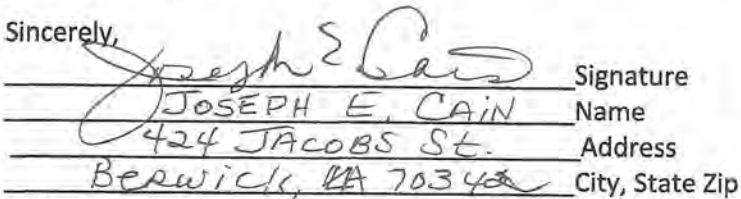 Sincerely,
Joseph E Cain Signature
JOSEPH E. CAIN Name
424 JACOBS St. Address
Berwick, LA 70342 City, State Zip